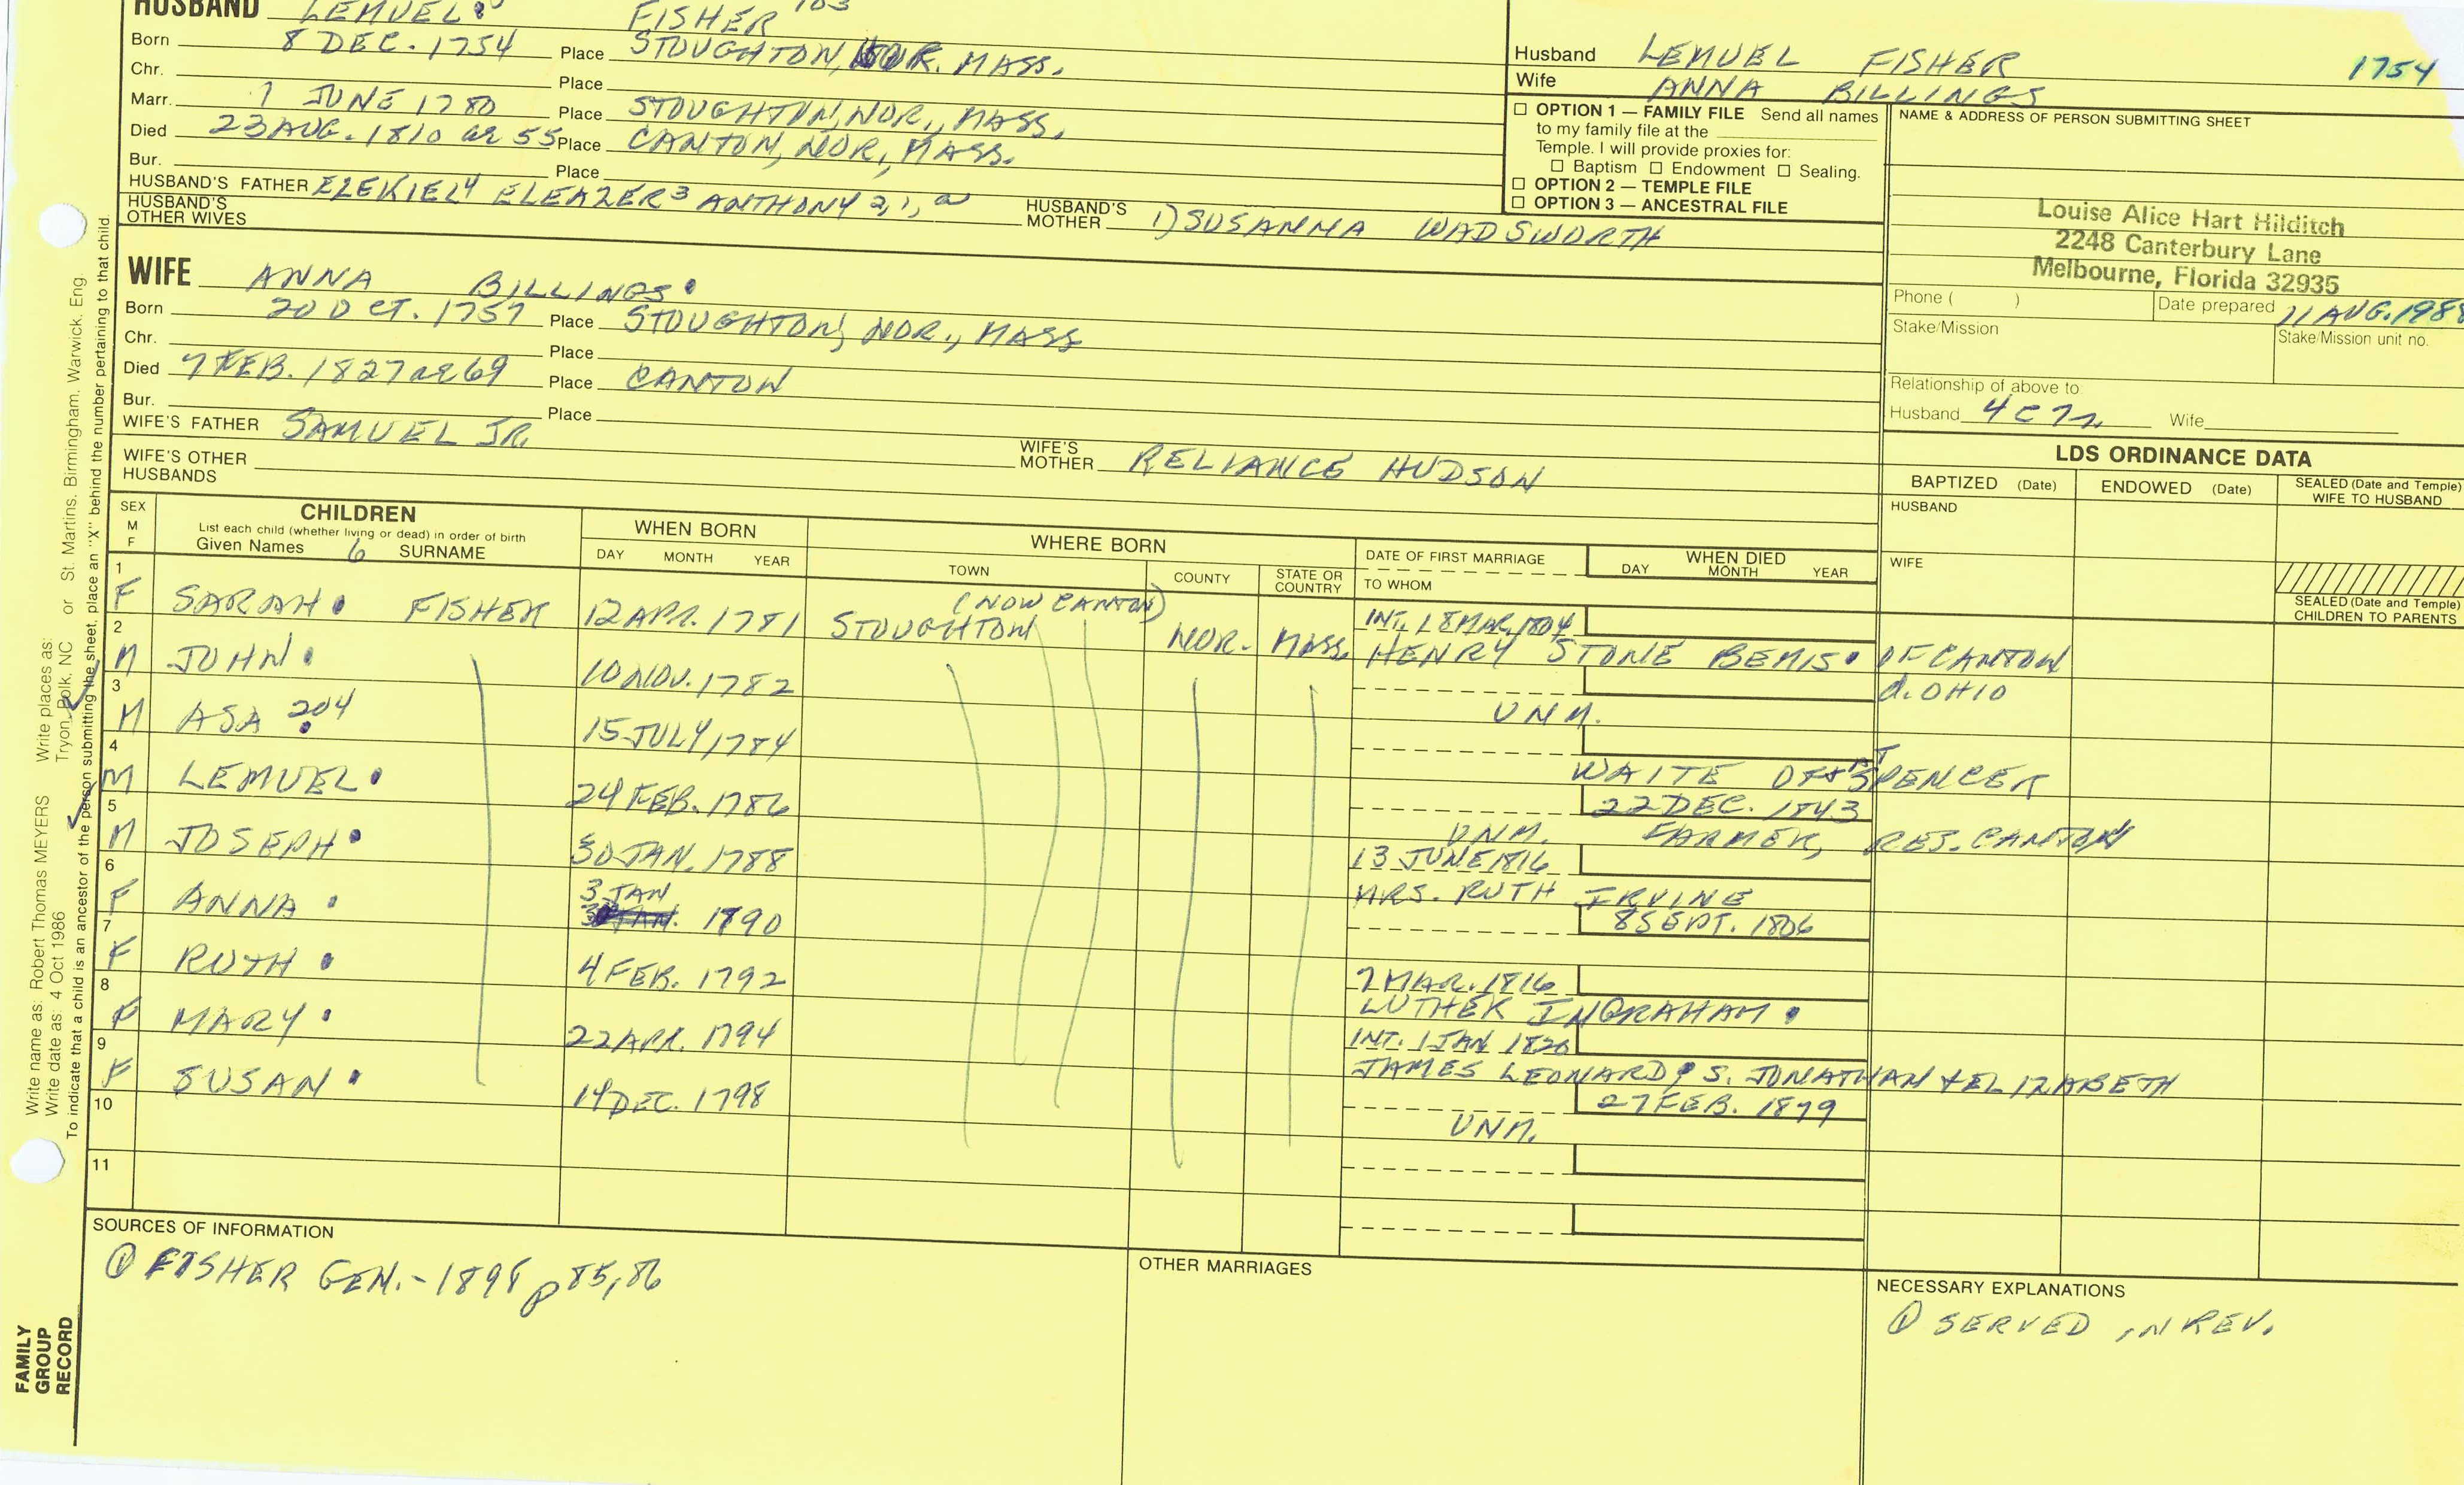 HUSBAND LEMUEL FISHER 103
Born 8 DEC. 1754 Place STOUGHTON, NOR. MASS.
Chr. Place
Marr. 1 JUNE 1780 Place STOUGHTON, NOR., MASS.
Died 23 AUG. 1810 ae 55 Place CANTON, NOR., MASS.
Bur. Place
HUSBAND'S FATHER EZEKIEL4 ELEAZER3 ANTHONY 2,1,
HUSBAND'S MOTHER 1) SUSANNA WADSWORTH
HUSBAND'S OTHER WIVES
WIFE ANNA BILLINGS
Born 20 OCT. 1757 Place STOUGHTON, NOR., MASS
Chr. Place
Died 7 FEB. 1827 ae 69 Place CANTON
Bur. Place
WIFE'S FATHER SAMUEL JR.
WIFE'S MOTHER RELIANCE HUDSON
WIFE'S OTHER HUSBANDS
Husband LEMUEL FISHER 1754
Wife ANNA BILLINGS
☐ OPTION 1 — FAMILY FILE Send all names
to my family file at the
Temple. I will provide proxies for:
☐ Baptism ☐ Endowment ☐ Sealing.
☐ OPTION 2 — TEMPLE FILE
☐ OPTION 3 — ANCESTRAL FILE
NAME & ADDRESS OF PERSON SUBMITTING SHEET
Louise Alice Hart Hilditch
2248 Canterbury Lane
Melbourne, Florida 32935
Phone ( ) Date prepared 11 AUG. 1988
Stake/Mission Stake/Mission unit no.
Relationship of above to
Husband 4C7r Wife
LDS ORDINANCE DATA
BAPTIZED (Date) ENDOWED (Date) SEALED (Date and Temple) WIFE TO HUSBAND
HUSBAND
WIFE
SEALED (Date and Temple) CHILDREN TO PARENTS
SEX M F
CHILDREN
List each child (whether living or dead) in order of birth
Given Names 6 SURNAME
WHEN BORN
DAY MONTH YEAR
WHERE BORN
TOWN COUNTY STATE OR COUNTRY
DATE OF FIRST MARRIAGE
TO WHOM
WHEN DIED
DAY MONTH YEAR
1 F SARAH FISHER 12 APR. 1781 STOUGHTON (NOW CANTON) NOR. MASS. INT. 18 MAR. 1804
HENRY STONE BEMIS OF CANTON
2 M JOHN 10 NOV. 1782 UNM. d. OHIO
3 M ASA 204 15 JULY, 1784 WAITE OF SPENCER
4 M LEMUEL 24 FEB. 1786 22 DEC. 1843
UNM. FARMER, RES. CANTON
5 M JOSEPH 30 JAN. 1788 13 JUNE 1816
MRS. RUTH IRVINE
6 F ANNA 3 JAN 1890 8 SEPT. 1806
7 F RUTH 4 FEB. 1792 7 MAR. 1816
LUTHER INGRAHAM
8 F MARY 22 APR. 1794 INT. 1 JAN 1820
JAMES LEONARD, S. JONATHAN + ELIZABETH
9 F SUSAN 14 DEC. 1798 27 FEB. 1879
UNM.
10
11
SOURCES OF INFORMATION
① FISHER GEN. - 1898 p 85, 86
OTHER MARRIAGES
NECESSARY EXPLANATIONS
① SERVED IN REV.
Write name as: Robert Thomas MEYERS Write places as:
Write date as: 4 Oct 1986 Tryon, Polk, NC or St. Martins, Birmingham, Warwick, Eng
To indicate that a child is an ancestor of the person submitting the sheet, place an "X" behind the number pertaining to that child.
FAMILY
GROUP
RECORD